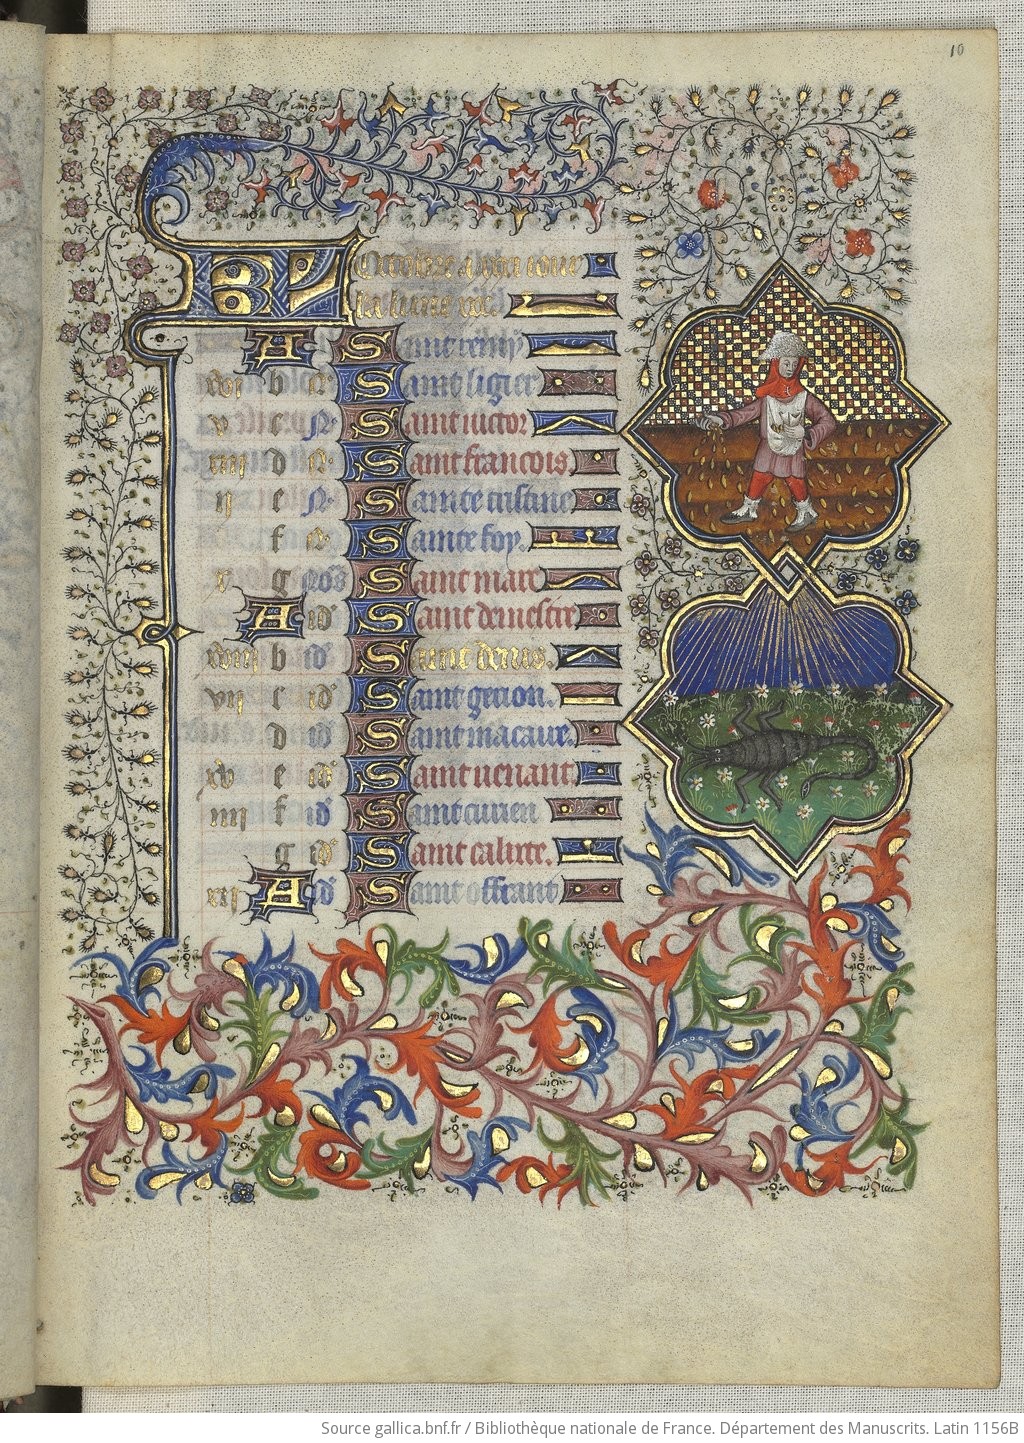 10
KL Octobre a xxxi iours
la lune xxx.
A Saint remy
b Saint ligier
v c N Saint uictor
iiii d N Saint francois.
ii e N Sainte cristine
f Sainte foy.
x g Saint marc
A id Saint demestre
b id Saint denis.
vii c id Saint gerion.
d id Saint macaire.
xv e id Saint uenant.
iiii f id Saint
g id Saint calixte.
xii A id Saint offrant
Source gallica.bnf.fr / Bibliothèque nationale de France. Département des Manuscrits. Latin 1156B